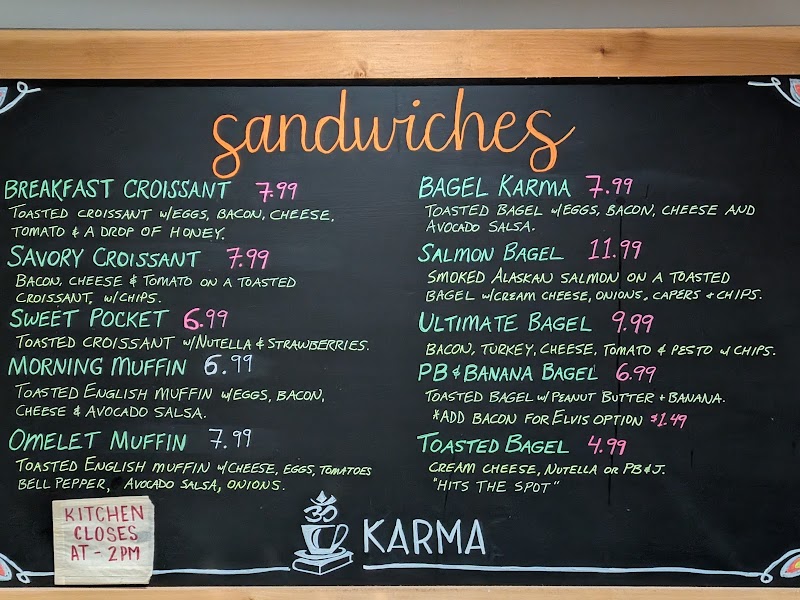 sandwiches
BREAKFAST CROISSANT 7.99
TOASTED CROISSANT W/EGGS, BACON, CHEESE,
TOMATO & A DROP OF HONEY.
SAVORY CROISSANT 7.99
BACON, CHEESE & TOMATO ON A TOASTED
CROISSANT, W/CHIPS.
SWEET POCKET 6.99
TOASTED CROISSANT W/NUTELLA & STRAWBERRIES.
MORNING MUFFIN 6.99
TOASTED ENGLISH MUFFIN W/EGGS, BACON,
CHEESE & AVOCADO SALSA.
OMELET MUFFIN 7.99
TOASTED ENGLISH MUFFIN W/CHEESE, EGGS, TOMATOES
BELL PEPPER, AVOCADO SALSA, ONIONS.
BAGEL KARMA 7.99
TOASTED BAGEL W/EGGS, BACON, CHEESE AND
AVOCADO SALSA.
SALMON BAGEL 11.99
SMOKED ALASKAN SALMON ON A TOASTED
BAGEL W/CREAM CHEESE, ONIONS, CAPERS + CHIPS.
ULTIMATE BAGEL 9.99
BACON, TURKEY, CHEESE, TOMATO & PESTO W/ CHIPS.
PB & BANANA BAGEL 6.99
TOASTED BAGEL W/PEANUT BUTTER + BANANA.
*ADD BACON FOR ELVIS OPTION $1.49
TOASTED BAGEL 4.99
CREAM CHEESE, NUTELLA OR PB&J.
"HITS THE SPOT"
KITCHEN
CLOSES
AT - 2PM
ॐ
KARMA